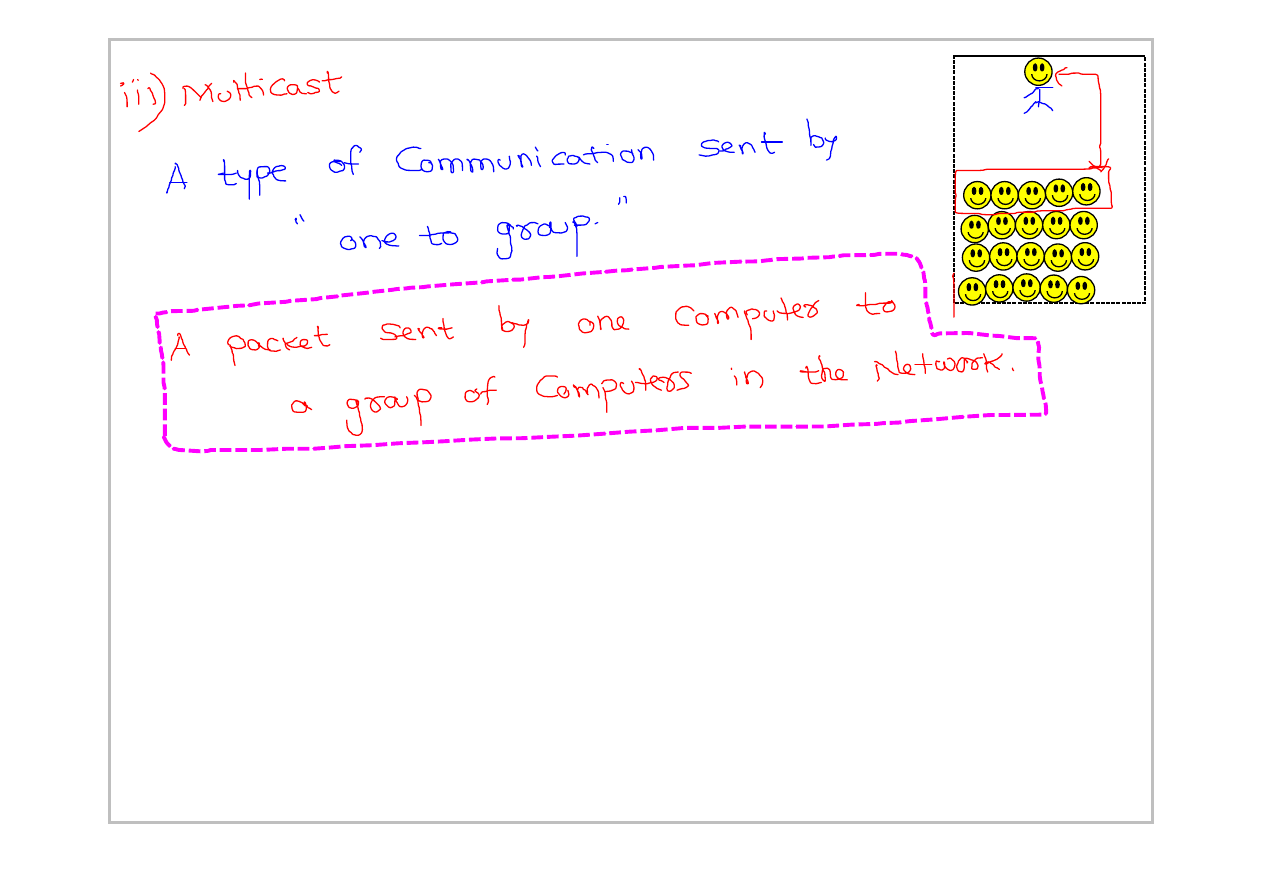 iii) Multicast
A type of Communication sent by
" one to group. "
A packet sent by one Computer to
a group of Computers in the Network.